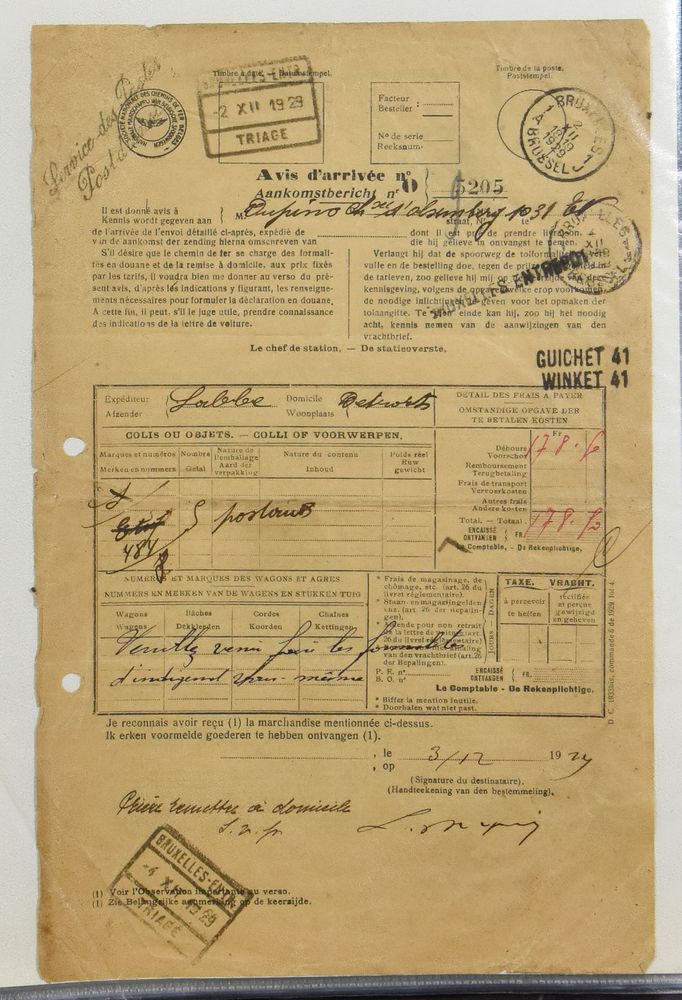 Service des Postes
Postd
SOCIETE NATIONALE DES CHEMINS DE FER BELGES
Timbre à date. — Datumstempel.
BRUXELLES-ENTR.
-2 XII 1929
TRIAGE
Facteur
Besteller :
No de serie
Reeksnum.
Timbre de la poste.
Poststempel.
BRUXELLES
1 A
2
XII
1929
BRUSSEL
Avis d'arrivée no
Aankomstbericht nr
0
5205
Il est donné avis à
Kennis wordt gegeven aan
M.
Chée d'Alsemberg 1031
straat, No
te
de l'arrivée de l'envoi détaillé ci-après, expédié de
van de aankomst der zending hierna omschreven van
dont il est prié de prendre livraison.
die hij gelieve in ontvangst te nemen.
S'il désire que le chemin de fer se charge des formalités
en douane et de la remise à domicile, aux prix fixés
par les tarifs, il voudra bien me donner au verso du présent
avis, d'après les indications y figurant, les renseignements
nécessaires pour formuler la déclaration en douane.
A cette fin, il peut, s'il le juge utile, prendre connaissance
des indications de la lettre de voiture.
Verlangt hij dat de spoorweg de tolformaliteiten
vulle en de bestelling doe, tegen de prijzen
de tarieven, zoo gelieve hij mij op de keerzijde van de
kennisgeving, volgens de opgaven welke erop voorkomen,
de noodige inlichtingen geven voor het opmaken der
tolaangifte. Te dien einde kan hij, zoo hij het noodig
acht, kennis nemen van de aanwijzingen van den
vrachtbrief.
BRUXELLES ENTREPOT
Le chef de station. — De statieoverste.
GUICHET 41
WINKET 41
Expéditeur
Afzender
Labbe
Domicile
Woonplaats
Detroit
DETAIL DES FRAIS A PAYER
OMSTANDIGE OPGAVE DER
TE BETALEN KOSTEN
COLIS OU OBJETS. — COLLI OF VOORWERPEN.
Marques et numéros
Merken en nummers
Nombre
Getal
Nature de
l'emballage
Aard der
verpakking
Nature du contenu
Inhoud
Poids réel
Ruw
gewicht
Fr.
Débours
Voorschot
178.50
Remboursement
Terugbetaling
Frais de transport
Vervoerkosten
Autres frais
Andere kosten
Total. — Totaal.
178.50
ENCAISSÉ
ONTVANGEN
FR.
Le Comptable. - De Rekenplichtige.
484
5 postaux
NUMEROS ET MARQUES DES WAGONS ET AGRES
NUMMERS EN MERKEN VAN DE WAGENS EN STUKKEN TUIG
Wagons
Wagens
Bâches
Dekkleeden
Cordes
Koorden
Chaînes
Kettingen
Veuillez venir faire les formalités
d'indigénat vous-même
* Frais de magasinage, de
chômage, etc. (art. 26 du
livret réglementaire).
* Staan- en magazijngelden
enz. (art. 26 der bepalingen).
* Amende pour non retrait
de la lettre de voiture (art.
26 du livret réglementaire)
van den vrachtbrief (art. 26
der Bepalingen).
P. E. no
B. O. nr
JOURS - DAGEN
TAXE. VRACHT.
à percevoir
te heffen
rectifiée
et perçue
gewijzigd
en geheven
ENCAISSÉ
ONTVANGEN
FR.
Le Comptable - De Rekenplichtige.
* Biffer la mention inutile.
* Doorhalen wat niet past.
Je reconnais avoir reçu (1) la marchandise mentionnée ci-dessus.
Ik erken voormelde goederen te hebben ontvangen (1).
, le
, op
3/12 1929
(Signature du destinataire).
(Handteekening van den bestemmeling).
Prière remettre à domicile
S.v.p.
BRUXELLES-ENTR.
-4 XII 1929
TRIAGE
(1) Voir l'Observation importante au verso.
(1) Zie Belangrijke aanmerking op de keerzijde.